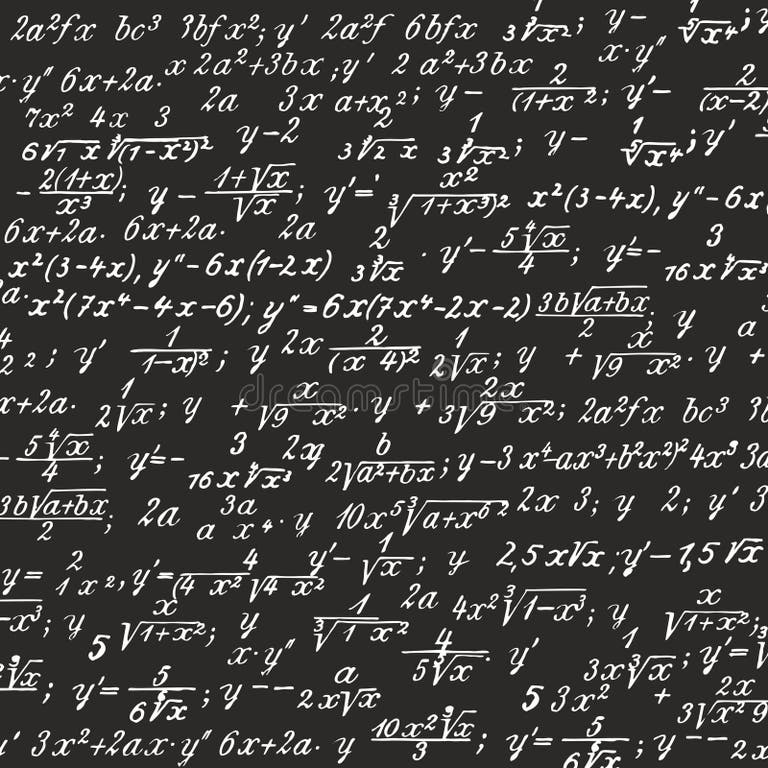 2a²fx bc³ 3bfx²; y' 2a²f 6bfx 1/3∛x²; y- 1/5∜x⁴;
x·y" 6x+2a. x 2a²+3bx; y' 2 a²+3bx x·y"
7x² 4x 3 2a 3x a+x,2; y- 2/(1+x²; y'- 2/(x-2)
6√1 x ∛(1-x²)² y-2 2/3∛2 x 1/3∛x²; y- 1/5√x⁴; y'
-2(1+x)/x³; y - 1+√x/√x; y'= x²/∛(1+x³)² x²(3-4x), y"-6x
6x+2a. 6x+2a. 2a 2/3∛x · y'- 5∜x/4; y'=- 3/16x∜x³
x²(3-4x), y"-6x(1-2x)
a. x²(7x⁴-4x-6); y"=6x(7x⁴-2x-2) 3b√a+bx/2; y a
2 2; y' 1/1-x)²; y 2x 2/(x 4)² 1/2√x; y + x/√9 x². y +
x+2a. 1/2√x; y + x/√9 x². y + 2x/3√9 x²; 2a²fx bc³
- 5∜x/4; y'=- 3/16x∜x³ 2xy b/2√a²+bx; y-3 x⁴-ax³+b²x²)² 4x³ 3a
3b√a+bx/2; 2a 3a/a x⁴. y 10x⁵∛a+x⁶ 2 2x 3; y 2; y' 3
y= 2/1 x², y'= 4/(4 x²√4 x² y'- 1/√x; y 2,5x√x; y'-1,5√x
-x³; y 5 x/√1+x²; y 1/∛1 x² 2a 4x²∛1-x³; y x/√1+x²;
x·y" 4/5∛x. y' 1/3x∛x; y'=
∛x; y'= 5/6√x; y -- a/2x√x 5 3x² + 2x/3√x² 9
3x²+2ax·y" 6x+2a. y 10x²∛x/3; y'= 5/6√x; y -- 2x
dreamstime.com